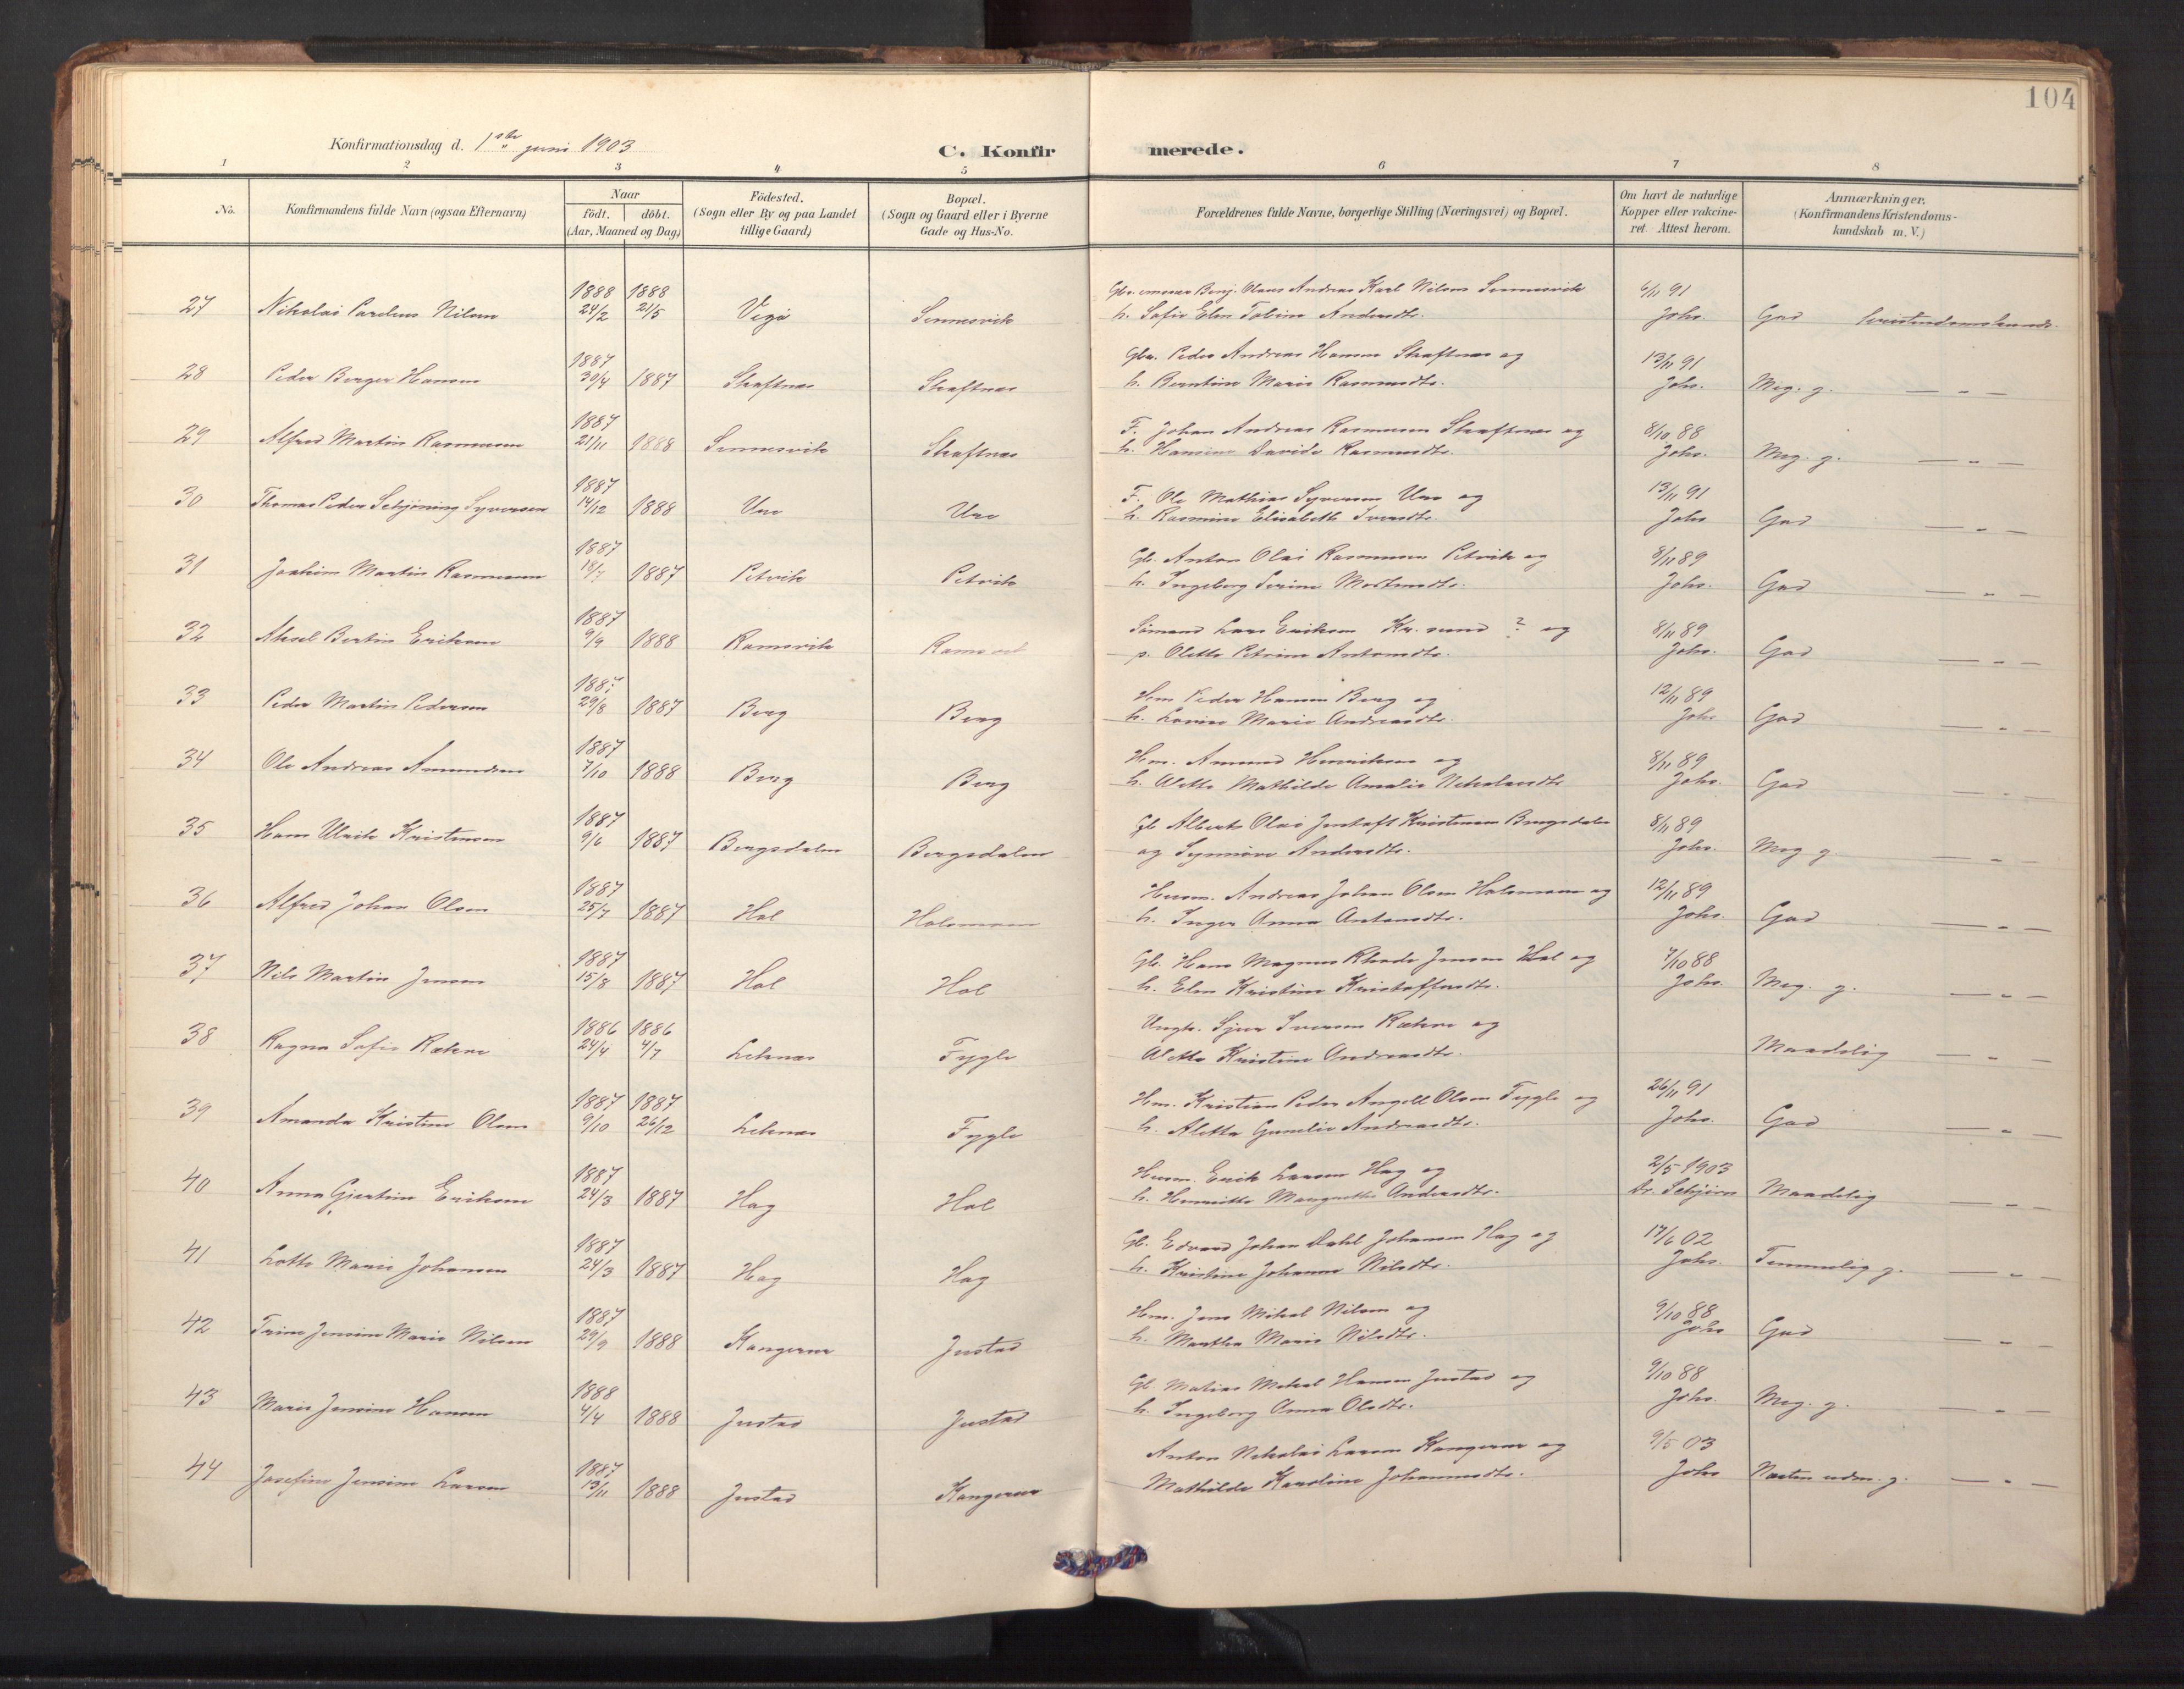 104
Konfirmationsdag d. 1ste juni 1903
C. Konfirmerede.
1 2 3 4 5 6 7 8
No.
Konfirmandens fulde Navn (ogsaa Efternavn)
Naar
födt. döbt.
(Aar, Maaned og Dag)
Födested.
(Sogn eller By og paa Landet
tillige Gaard)
Bopæl.
(Sogn og Gaard eller i Byerne
Gade og Hus-No.
Forældrenes fulde Navne, borgerlige Stilling (Næringsvei) og Bopæl.
Om havt de naturlige
Kopper eller vakcine-
ret. Attest herom.
Anmærkninger.
(Konfirmandens Kristendoms-
kundskab m. V.)
27 Nikolai Nilsen 1888 24/2 1888 21/5 Sennesvik
Olaus Andreas Karl Nilsen Sennesvik 6/11 91
h. Sofie Elen Tobine Andersdtr. Johs. God Kristendomskunds.
28 Peder Berger Hansen 1887 30/4 1887 Skaftnæs Skaftnæs
Gbr. Peder Andreas Hansen Skaftnæs og 13/11 91
h. Berntine Marie Rasmusdtr. Johs. Meg. g. — „ —
29 Alfred Martin Rasmussen 1887 21/11 1888 Sennesvik Skaftnæs
F. Johan Andreas Rasmussen Skaftnæs og 8/10 88
h. Hansine Davide Rasmusdtr. Johs. Meg. g. — „ —
30 Thomas Peder Schjöning Syversen 1887 14/12 1888 Ure Ure
F. Ole Mathias Syversen Ure og 13/11 91
h. Rasmine Elisabeth Iversdtr. Johs God — „ —
31 Joakim Martin Rasmussen 1887 18/7 1887 Petvik Petvik
Gb. Anton Olai Rasmussen Petvik og 8/11 89
h. Ingeborg Serine Mortensdtr. Johs. God — „ —
32 Aksel Bertin Eriksen 1887 9/9 1888 Ramsvik
Sömand Lars Eriksen Kr. sund ? og 8/11 89
p. Oletta Petrine Antonsdtr. Johs. God — „ —
33 Peder Martin Pedersen 1887 29/8 1887 Berg Berg
Hm Peder Hansen Berg og 12/11 89
h. Lovise Marie Andreasdtr. Johs God — „ —
34 Ole Andreas Amundsen 1887 7/10 1888 Berg Berg
Hm. Amund Henriksen og 8/11 89
h. Aletta Mathilde Amalie Nikolaisdtr Johs. God — „ —
35 Hans Ulrik Kristensen 1887 9/6 1887 Bergsdalen Bergsdalen
Gb Albert Olai Justaft Kristensen Bergsdalen 8/11 89
og Synnöve Andersdtr. Johs. Meg g. — „ —
36 Alfred Johan Olsen 1887 25/7 1887 Hol Holsmoen
Husm. Andreas Johan Olsen Holsmoen og 12/11 89
h. Inger Anna Antonsdtr. Johs. God — „ —
37 Nils Martin Jensen 1887 15/8 1887 Hol Hol
Gb. Hans Magnus Rhode Jensen Hol og 7/10 88
h. Elen Kristine Kristoffersdtr. Johs. Meg. g. — „ —
38 Ragna Sofie 1886 24/4 1886 4/7 Leknæs Fygle
Ungk. Sjur Iversen og
Aletta Kristine Andreasdtr. Maadelig — „ —
39 Amanda Kristine Olsen 1887 9/10 1887 26/12 Leknæs Fygle
Hm. Kristian Peder Angell Olsen Fygle og 26/11 91
h. Aletta Gunelie Andreasdtr. Johs. God — „ —
40 Anna Gjertine Eriksen 1887 24/3 1887 Hag Hol
Husm. Erik Larsen Hag og 2/5 1903
h. Henriette Margrethe Andersdtr. Dr. Maadelig — „ —
41 Lotte Marie Johansen 1887 24/3 1887 Hag Hag
Gb. Edvard Johan Dahl Johansen Hag og 17/6 02
h. Kristine Johanna Nilsdtr. Johs. Temmelig g. — „ —
42 Trine Jensine Marie Nilsen 1887 29/9 1888 Kangerur Justad
Hm. Jens Mikal Nilsen og 9/10 88
h. Martha Marie Nilsdtr. Johs God — „ —
43 Marie Jensine Hansen 1888 4/4 1888 Justad Justad
Gb. Matias Mikal Hansen Justad og 9/10 88
h. Ingeborg Anna Olsdtr. Johs. Meg. g. — „ —
44 Josefine Jensine Larsen 1887 13/11 1888 Justad Kangerur
Anton Nikolai Larsen Kangerur og 9/5 03
Mathilde Karoline Johannesdtr. Johs Næsten udm. g. — „ —